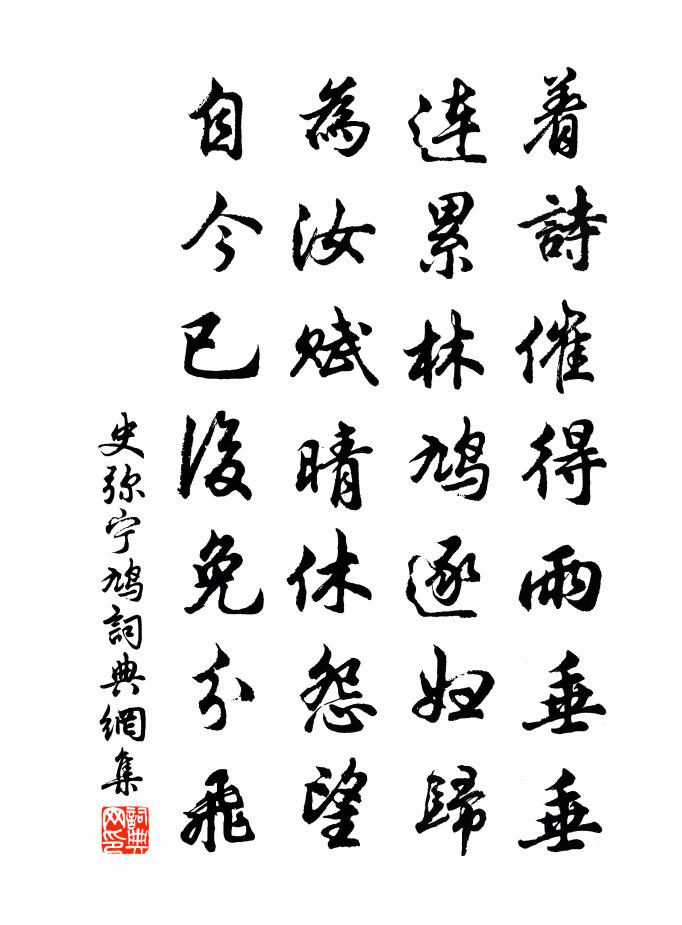 着詩催得雨垂垂
連累林鳩逐妇歸
為汝賦晴休怨望
自今已後免分飛
史弥宁鳩詞典網集
詞典网印